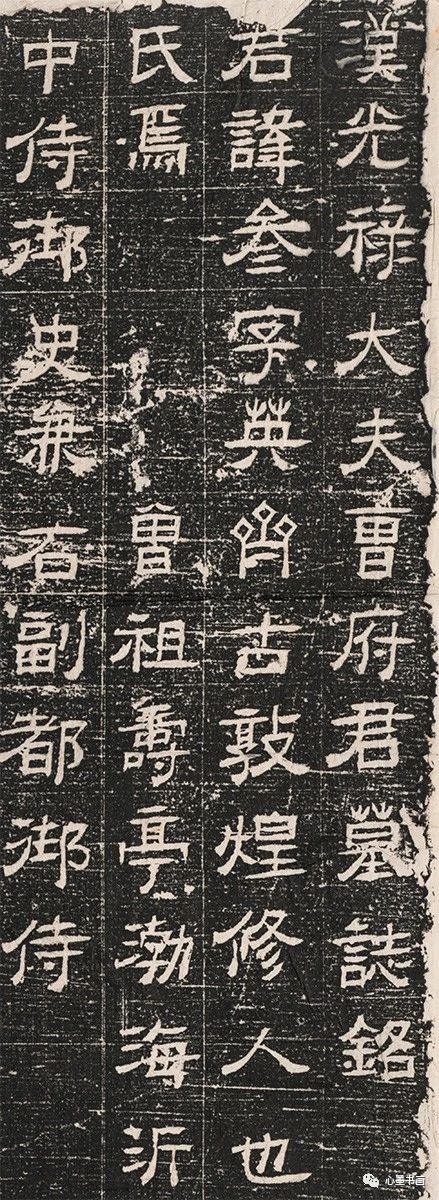 漢光祿大夫曹府君墓誌銘
君諱叅字英齊古敦煌修人也
氏焉 曾祖壽亭渤海沂
中侍御史兼右副都御侍
心量书画